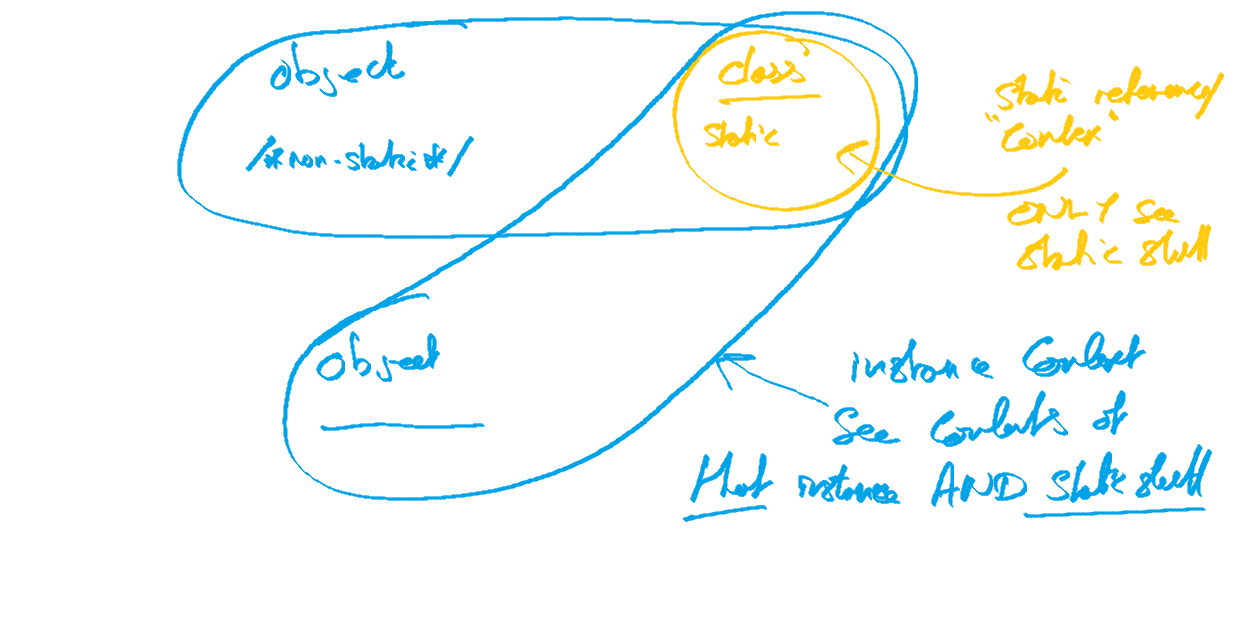 object
/*non-static*/
class
static
static reference/
"Contex"
ONLY see
static stuff
object
instance Context
See Contents of
that instance AND static stuff